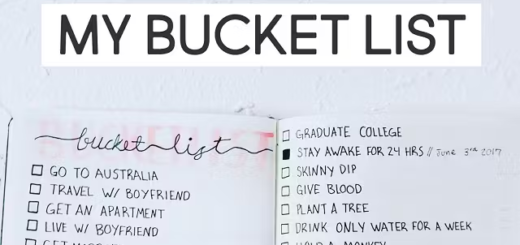 MY BUCKET LIST
bucket list
GO TO AUSTRALIA
TRAVEL W/ BOYFRIEND
GET AN APARTMENT
LIVE W/ BOYFRIEND
GRADUATE COLLEGE
STAY AWAKE FOR 24 HRS // June 3rd 2017
SKINNY DIP
GIVE BLOOD
PLANT A TREE
DRINK ONLY WATER FOR A WEEK
HOLD A MONKEY